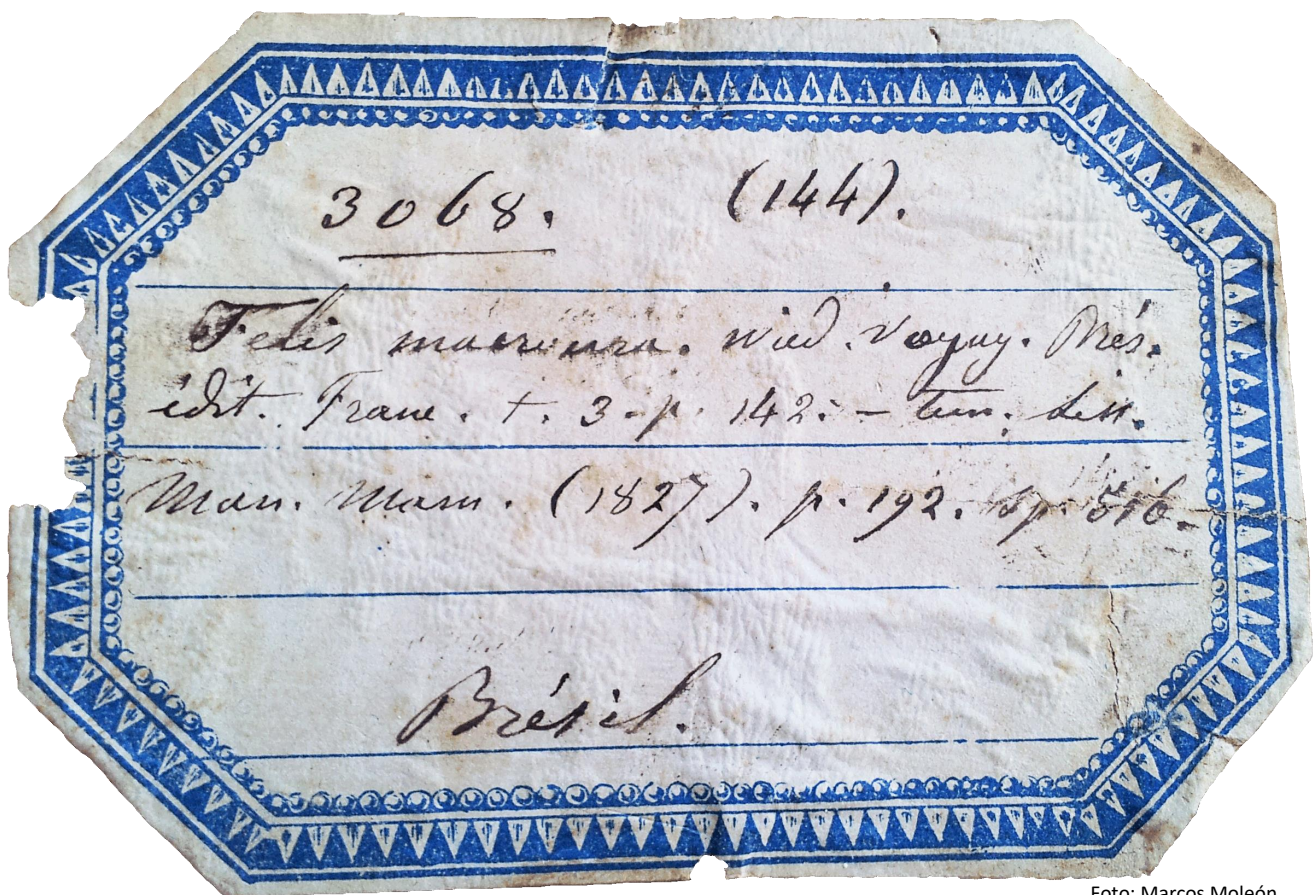 3068. (144).
Felis macroura. Wied. Voyag. Brés.
édit. Franc. t. 3-p. 142. -
Man. Mam. (1827). p. 192. sp. 516.
Brésil.
Foto: Marcos Moleón